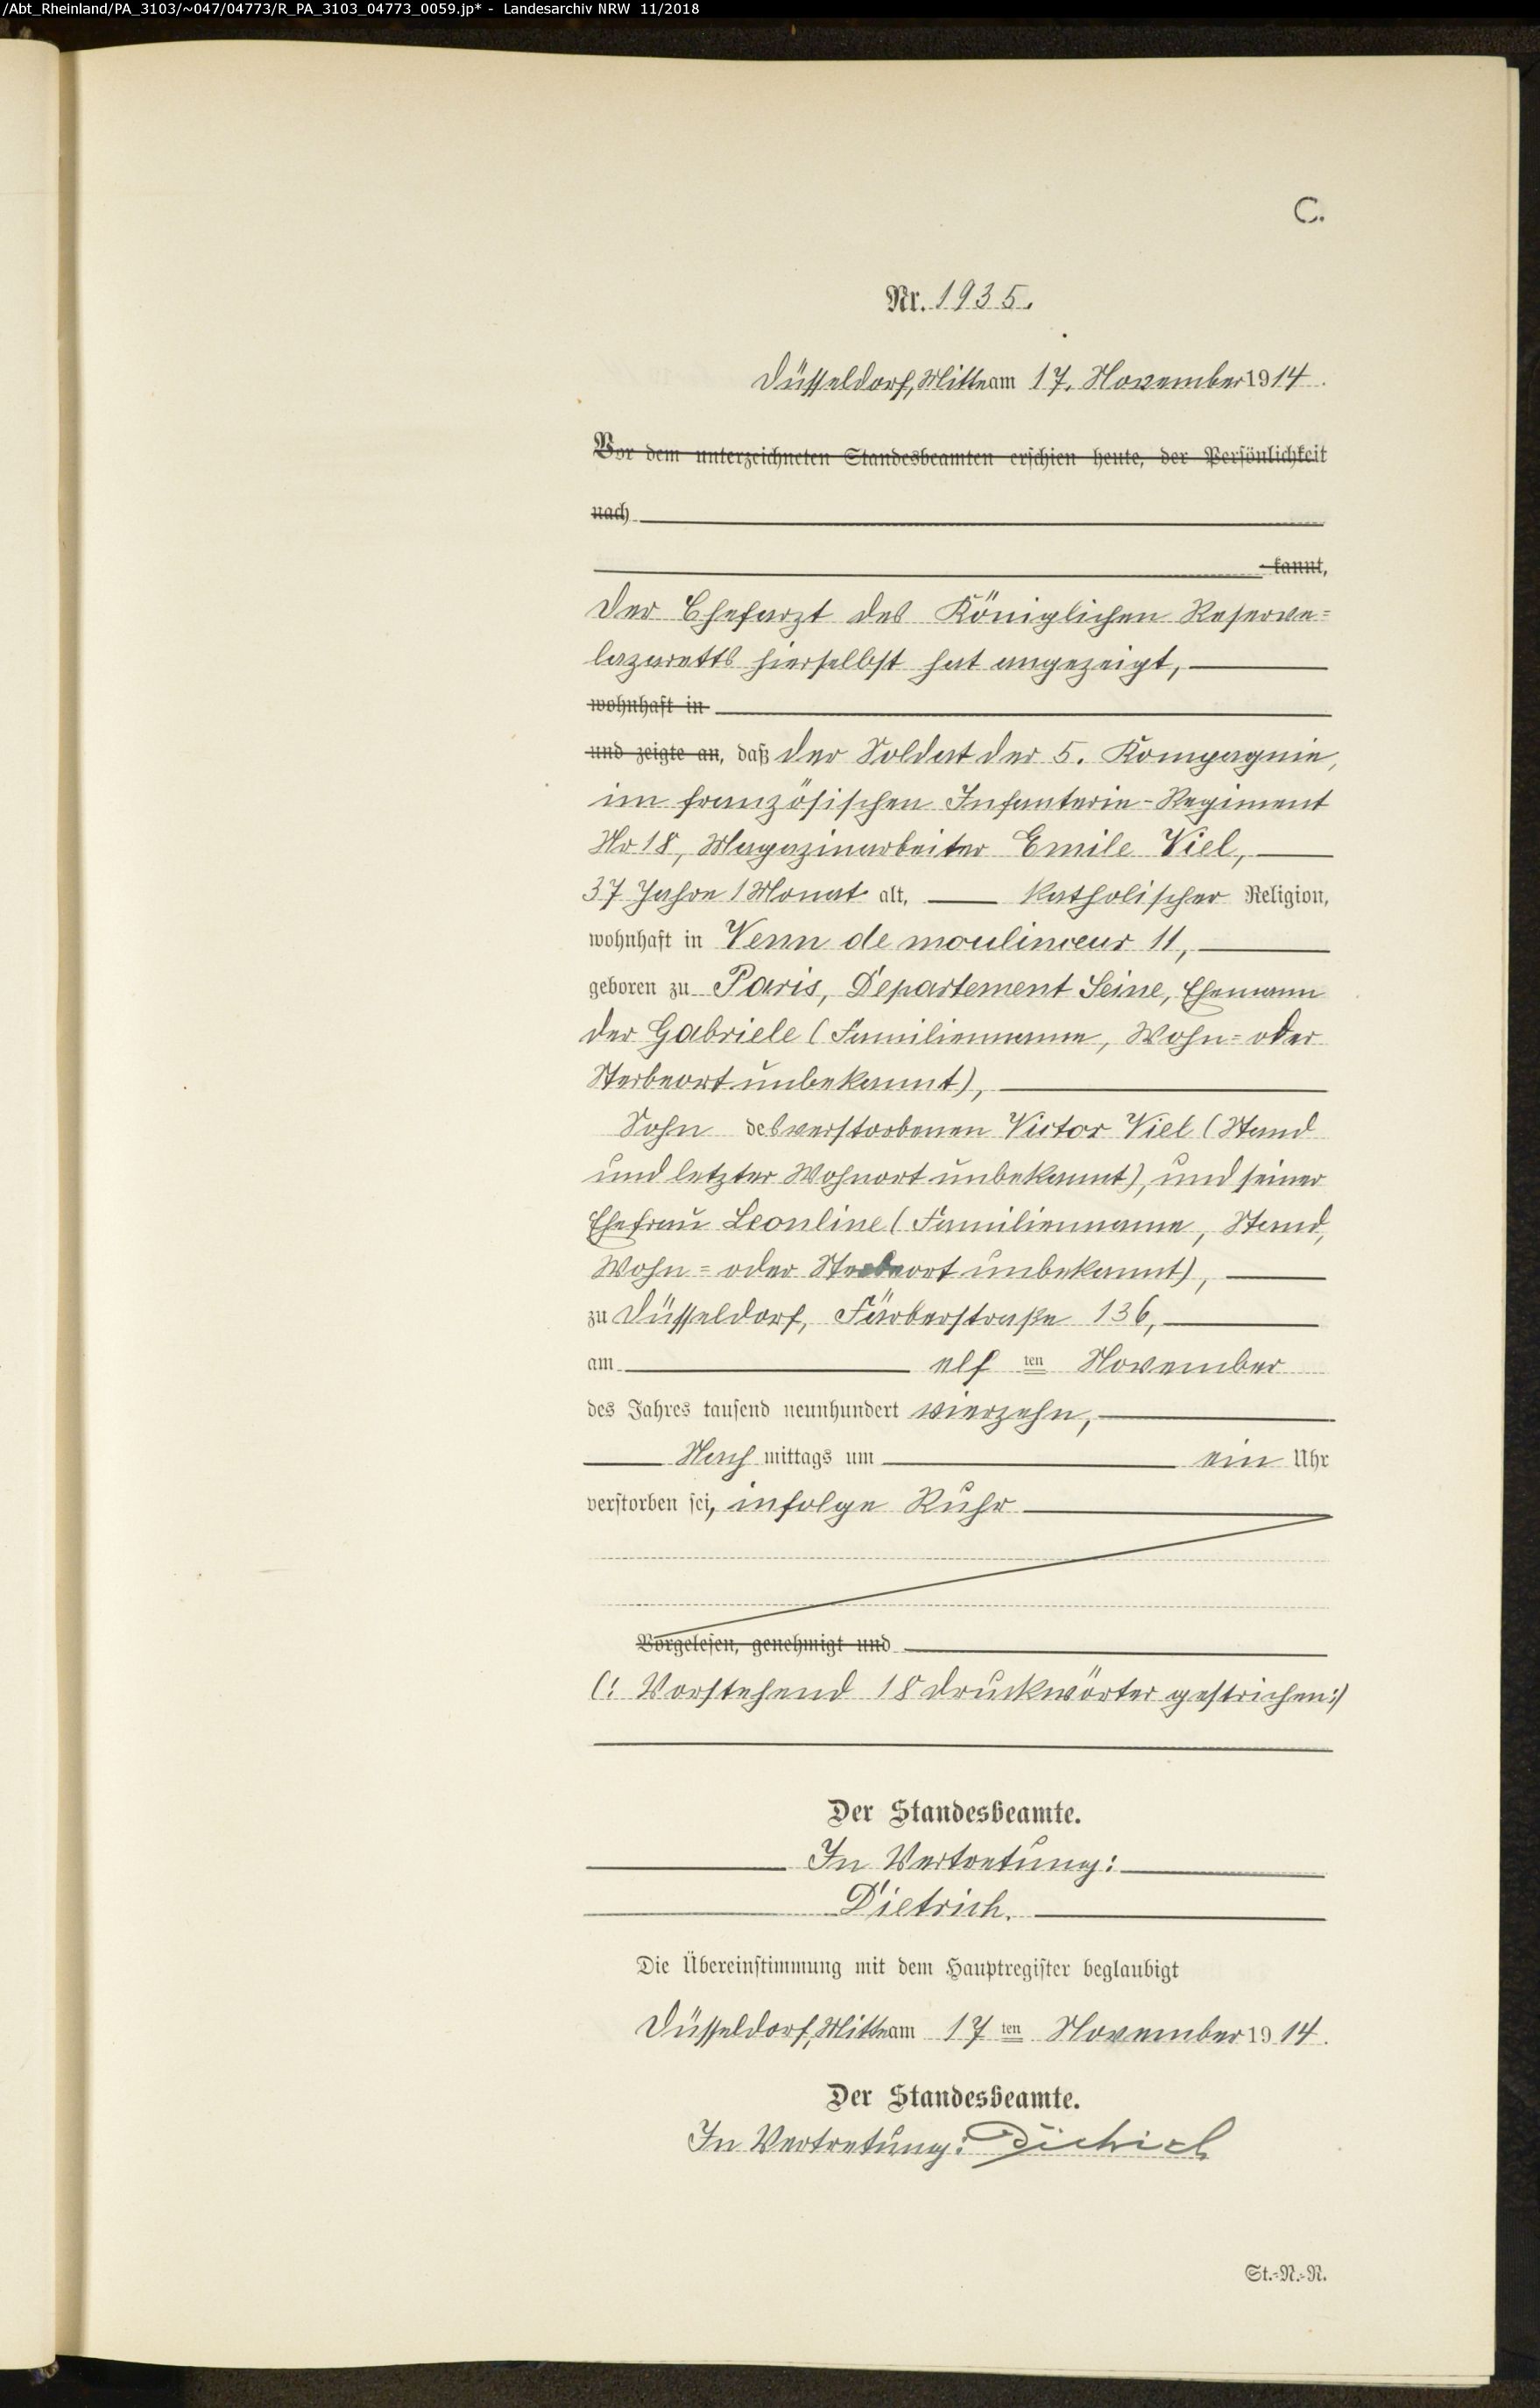 /Abt_Rheinland/PA_3103/~047/04773/R_PA_3103_04773_0059.jp* - Landesarchiv NRW 11/2018
C.
Nr. 1935.
Düsseldorf, Mitte am 17. November 1914.
Vor dem unterzeichneten Standesbeamten erschien heute, der Persönlichkeit
nach
kannt,
Der Chefarzt des Königlichen Reserve=
lazaretts hierselbst hat angezeigt,
wohnhaft in
und zeigte an, daß der Soldat der 5. Kompagnie,
im französischen Infanterie-Regiment
No 18, Magazinarbeiter Emile Viel,
37 Jahre 1 Monat alt, katholischer Religion,
wohnhaft in Venn de moulineur 11,
geboren zu Paris, Departement Seine, Ehemann
der Gabriele (Familienname, Wohn= oder
Sterbeort unbekannt),
Sohn des verstorbenen Victor Viel (Stand
und letzter Wohnort unbekannt), und seiner
Ehefrau Leonline (Familienname, Stand,
Wohn= oder Sterbeort unbekannt),
zu Düsseldorf, Färberstraße 136,
am elf ten November
des Jahres tausend neunhundert vierzehn,
Nach mittags um ein Uhr
verstorben sei, infolge Ruhr
Vorgelesen, genehmigt und
(: Vorstehend 18 Druckwörter gestrichen:)
Der Standesbeamte.
In Vertretung:
Dietrich.
Die Übereinstimmung mit dem Hauptregister beglaubigt
Düsseldorf, Mitte am 17 ten November 1914.
Der Standesbeamte.
In Vertretung: Dietrich
St.-N.-N.